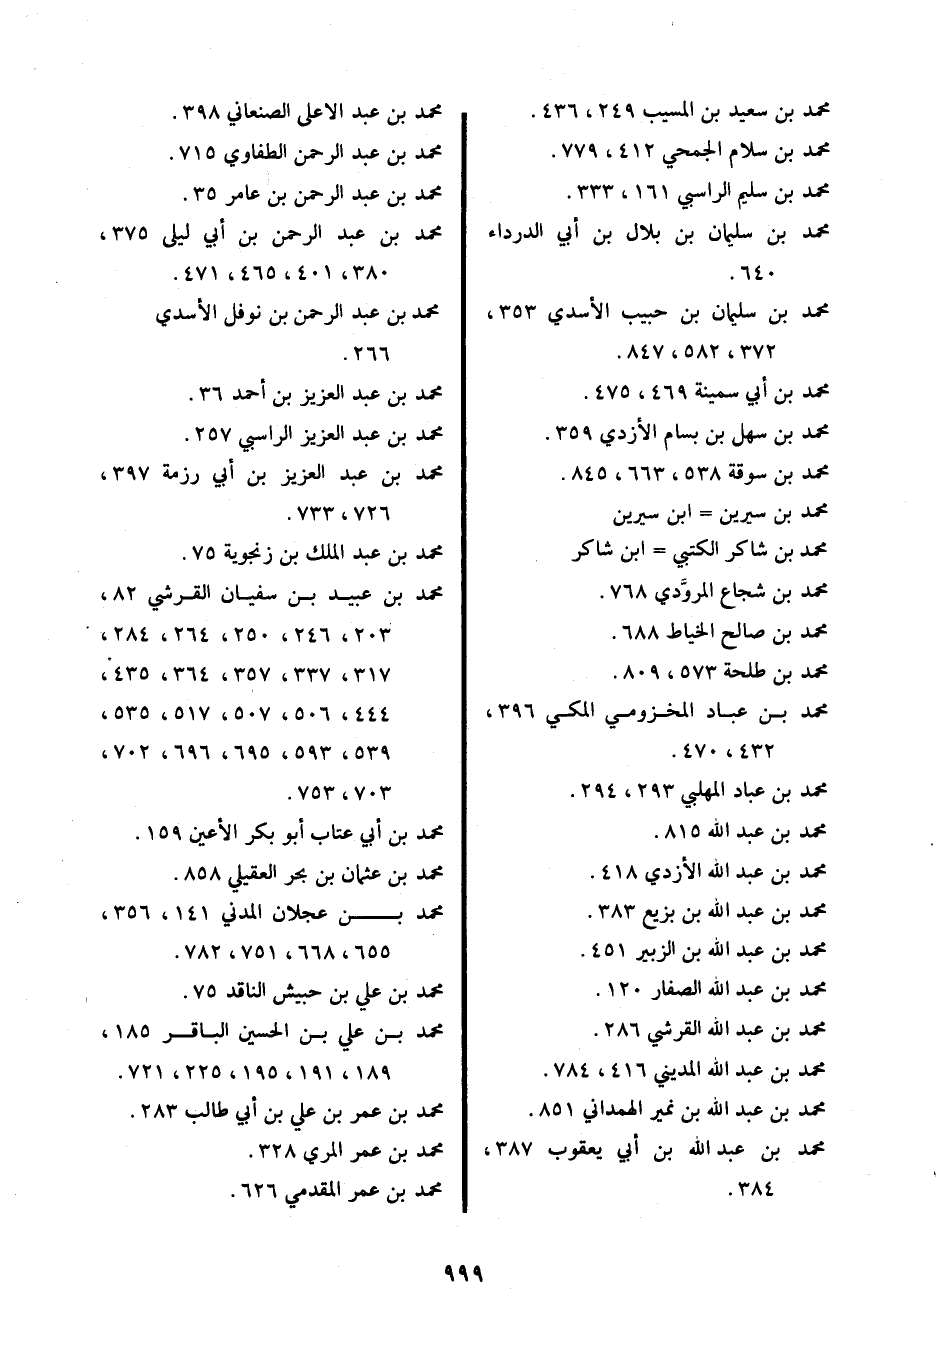 محمد بن سعيد بن المسيب ٢٤٩ ، ٤٣٦ .
محمد بن سلام الجمحي ٤١٢ ، ٧٧٩ .
محمد بن سليم الراسبي ١٦١ ، ٣٣٣ .
محمد بن سليمان بن بلال بن أبي الدرداء
٦٤٠ .
محمد بن سليمان بن حبيب الأسدي ٣٥٣ ،
٣٧٢ ، ٥٨٢ ، ٨٤٧ .
محمد بن أبي سمينة ٤٦٩ ، ٤٧٥ .
محمد بن سهل بن بسام الأزدي ٣٥٩ .
محمد بن سوقة ٥٣٨ ، ٦٦٣ ، ٨٤٥ .
محمد بن سيرين = ابن سيرين
محمد بن شاكر الكتبي = ابن شاكر
محمد بن شجاع المروَّدي ٧٦٨ .
محمد بن صالح الخياط ٦٨٨ .
محمد بن طلحة ٥٧٣ ، ٨٠٩ .
محمد بـن عبـاد المخـزومـي المكـي ٣٩٦ ،
٤٣٢ ، ٤٧٠ .
محمد بن عباد المهلبي ٢٩٣ ، ٢٩٤ .
محمد بن عبد الله ٨١٥ .
محمد بن عبد الله الأزدي ٤١٨ .
محمد بن عبد الله بن بزيع ٣٨٣ .
محمد بن عبد الله بن الزبير ٤٥١ .
محمد بن عبد الله الصفار ١٢٠ .
محمد بن عبد الله القرشي ٢٨٦ .
محمد بن عبد الله المديني ٤١٦ ، ٧٨٤ .
محمد بن عبد الله بن نمير الهمداني ٨٥١ .
محمد بن عبد الله بن أبي يعقوب ٣٨٧ ،
٣٨٤ .
محمد بن عبد الاعلى الصنعاني ٣٩٨ .
محمد بن عبد الرحمن الطفاوي ٧١٥ .
محمد بن عبد الرحمن بن عامر ٣٥ .
محمد بن عبد الرحمن بن أبي ليلى ٣٧٥ ،
٣٨٠ ، ٤٠١ ، ٤٦٥ ، ٤٧١ .
محمد بن عبد الرحمن بن نوفل الأسدي
٢٦٦ .
محمد بن عبد العزيز بن أحمد ٣٦ .
محمد بن عبد العزيز الراسبي ٢٥٧ .
محمد بن عبد العزيز بن أبي رزمة ٣٩٧ ،
٧٢٦ ، ٧٣٣ .
محمد بن عبد الملك بن زنجوية ٧٥ .
محمد بن عبيـد بـن سفيـان القـرشي ٨٢ ،
٢٠٣ ، ٢٤٦ ، ٢٥٠ ، ٢٦٤ ، ٢٨٤ ،
٣١٧ ، ٣٣٧ ، ٣٥٧ ، ٣٦٤ ، ٤٣٥ ،
٤٤٤ ، ٥٠٦ ، ٥٠٧ ، ٥١٧ ، ٥٣٥ ،
٥٣٩ ، ٥٩٣ ، ٦٩٥ ، ٦٩٦ ، ٧٠٢ ،
٧٠٣ ، ٧٥٣ .
محمد بن أبي عتاب أبو بكر الأعين ١٥٩ .
محمد بن عثمان بن بحر العقيلي ٨٥٨ .
محمد بـــن عجلان المدني ١٤١ ، ٣٥٦ ،
٦٥٥ ، ٦٦٨ ، ٧٥١ ، ٧٨٢ .
محمد بن علي بن حبيش الناقد ٧٥ .
محمد بـن علي بـن الحسين البـاقـر ١٨٥ ،
١٨٩ ، ١٩١ ، ١٩٥ ، ٢٢٥ ، ٧٢١ .
محمد بن عمر بن علي بن أبي طالب ٢٨٣ .
محمد بن عمر المري ٣٢٨ .
محمد بن عمر المقدمي ٦٢٦ .
٩٩٩